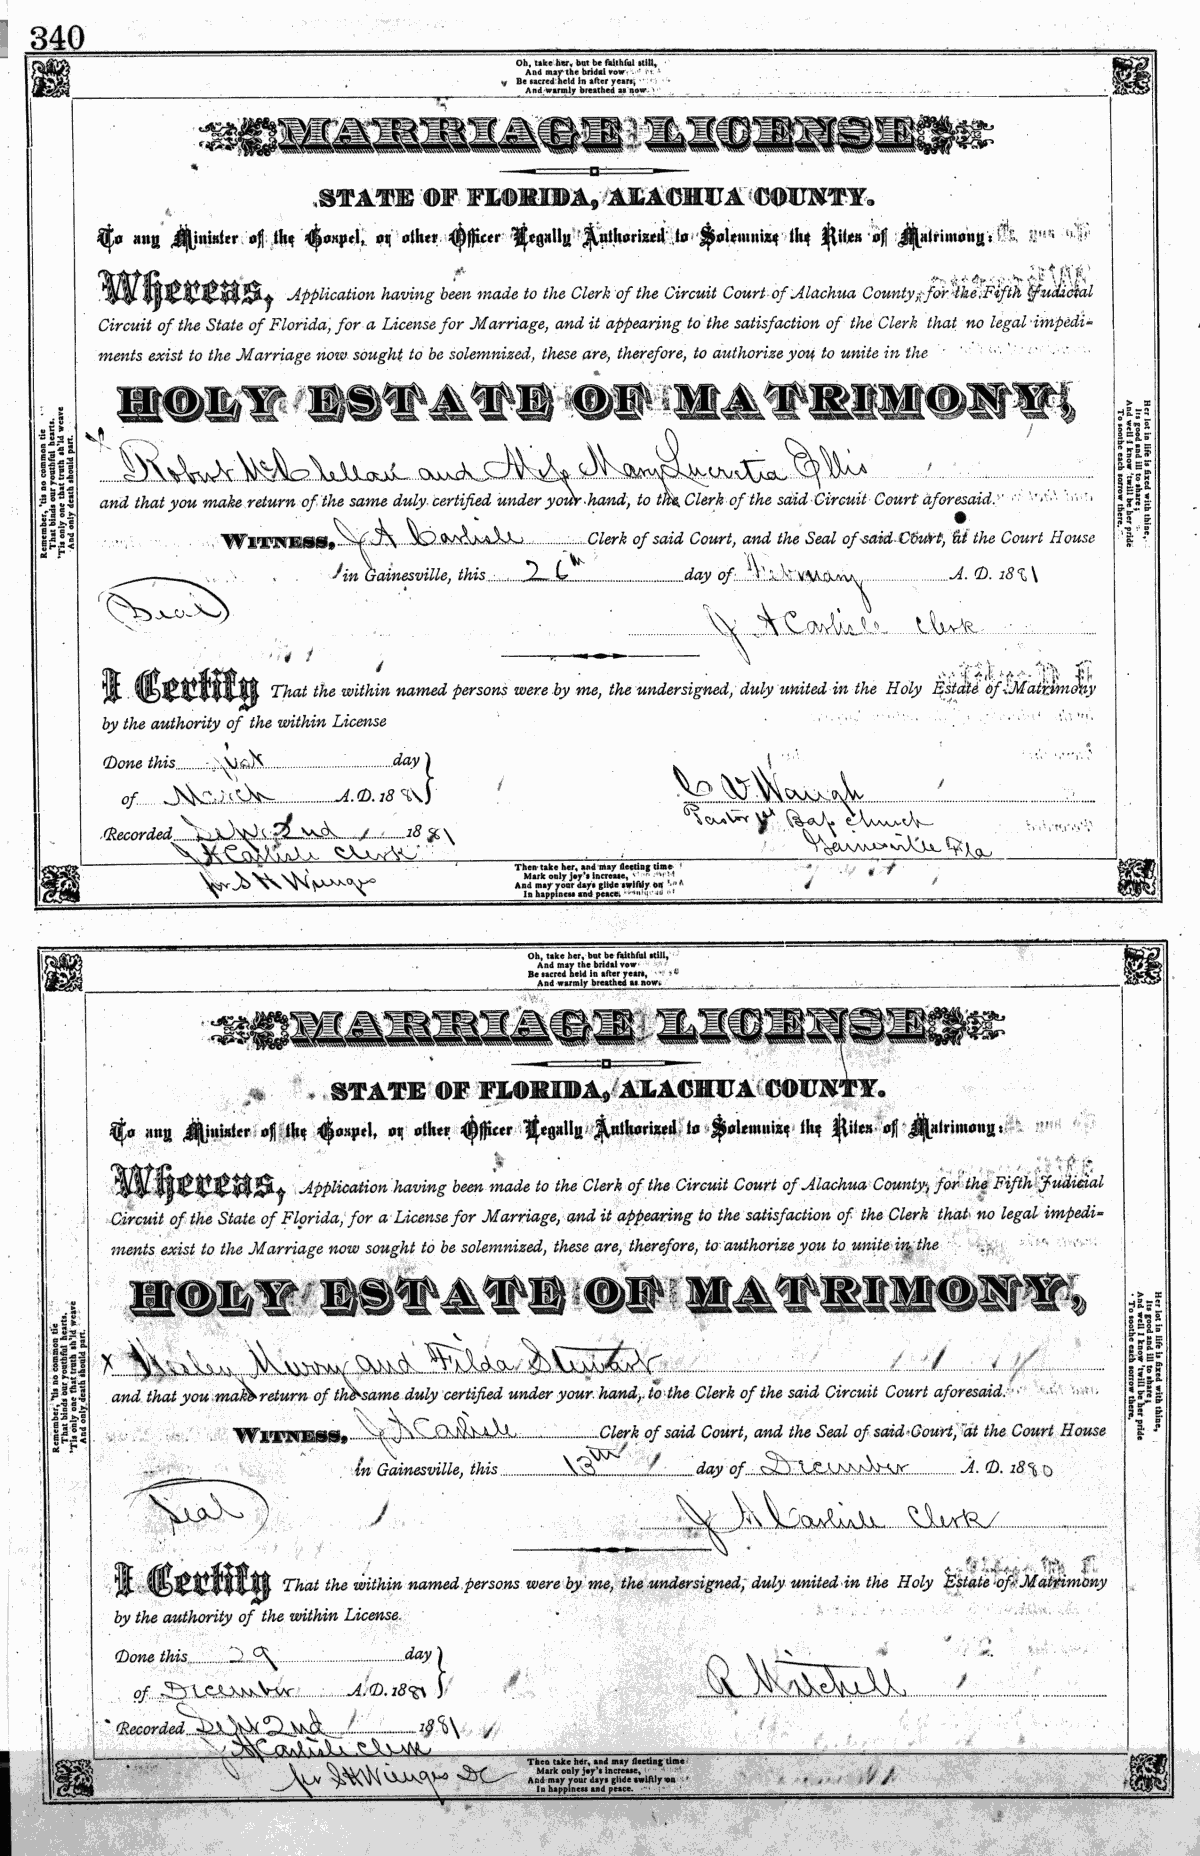 340
Oh, take her, but be faithful still,
And may the bridal vow
Be sacred held in after years,
And warmly breathed as now.
MARRIAGE LICENSE
STATE OF FLORIDA, ALACHUA COUNTY.
To any Minister of the Gospel, or other Officer Legally Authorized to Solemnize the Rites of Matrimony:
Whereas, Application having been made to the Clerk of the Circuit Court of Alachua County, for the Fifth Judicial
Circuit of the State of Florida, for a License for Marriage, and it appearing to the satisfaction of the Clerk that no legal impedi-
ments exist to the Marriage now sought to be solemnized, these are, therefore, to authorize you to unite in the
HOLY ESTATE OF MATRIMONY,
Robert McClellan and Miss Mary Lucretia Ellis
and that you make return of the same duly certified under your hand, to the Clerk of the said Circuit Court aforesaid.
WITNESS, J A Carlisle Clerk of said Court, and the Seal of said Court, at the Court House
in Gainesville, this 26th day of February A. D. 1881
(Seal)
J A Carlisle Clerk
I Certify That the within named persons were by me, the undersigned, duly united in the Holy Estate of Matrimony
by the authority of the within License
Done this 1st day
of March A.D. 1881
C V Waugh
Pastor 1st Bap church
Gainesville Fla
Recorded Sept 2nd 1881
J A Carlisle Clerk
for S H Wienges
Remember, 'tis no common tie
That binds our youthful hearts,
'Tis only one that truth sh'ld weave
And only death should part.
Her lot in life is fixed with thine,
Its good and ill to share;
And well I know 'twill be her pride
To soothe each sorrow there.
Then take her, and may fleeting time
Mark only joy's increase,
And may your days glide swiftly on
In happiness and peace.
Oh, take her, but be faithful still,
And may the bridal vow
Be sacred held in after years,
And warmly breathed as now.
MARRIAGE LICENSE
STATE OF FLORIDA, ALACHUA COUNTY.
To any Minister of the Gospel, or other Officer Legally Authorized to Solemnize the Rites of Matrimony:
Whereas, Application having been made to the Clerk of the Circuit Court of Alachua County, for the Fifth Judicial
Circuit of the State of Florida, for a License for Marriage, and it appearing to the satisfaction of the Clerk that no legal impedi-
ments exist to the Marriage now sought to be solemnized, these are, therefore, to authorize you to unite in the
HOLY ESTATE OF MATRIMONY,
x Wesley Murry and Filda Stewart
and that you make return of the same duly certified under your hand, to the Clerk of the said Circuit Court aforesaid.
WITNESS, J A Carlisle Clerk of said Court, and the Seal of said Court, at the Court House
in Gainesville, this 13th day of December A. D. 1880
Seal
J A Carlisle Clerk
I Certify That the within named persons were by me, the undersigned, duly united in the Holy Estate of Matrimony
by the authority of the within License.
Done this 29 day
of December A.D. 1881
R Mitchell
Recorded Sept 2nd 1881
J A Carlisle Clerk
for S H Wienges DC
Remember, 'tis no common tie
That binds our youthful hearts,
'Tis only one that truth sh'ld weave
And only death should part.
Her lot in life is fixed with thine,
Its good and ill to share;
And well I know 'twill be her pride
To soothe each sorrow there.
Then take her, and may fleeting time
Mark only joy's increase,
And may your days glide swiftly on
In happiness and peace.